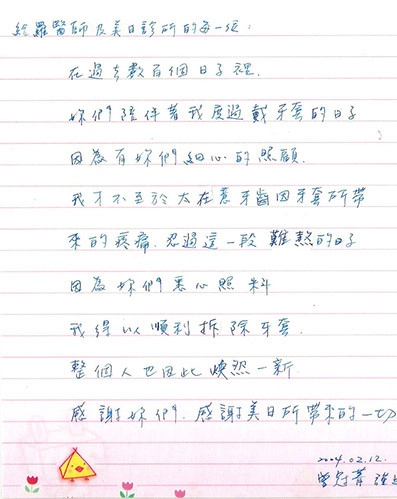 給羅醫師及美日診所的每一位：
在過去數百個日子裡.
妳們陪伴著我度過戴牙套的日子
因為有妳們細心的照顧.
我才不至於太在意牙齒因牙套所帶
來的疼痛.忍過這一段難熬的日子
因為妳們悉心照料
我得以順利拆除牙套.
整個人也因此煥然一新.
感謝妳們.感謝美日所帶來的一切
2004.02.12.
曾冠菁